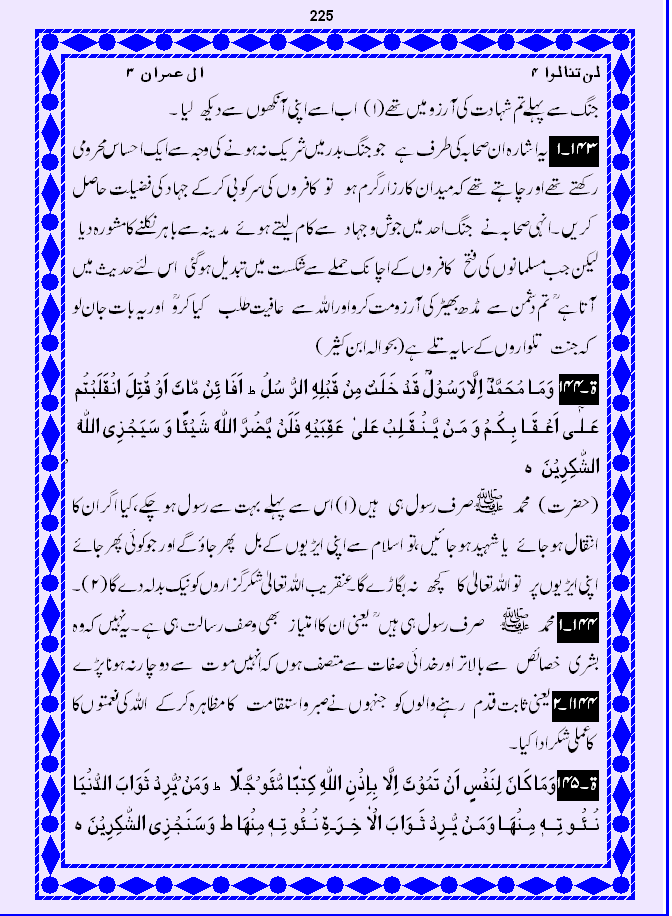 225
لن تنالوا ۴ ال عمران ۳
جنگ سے پہلے تم شہادت کی آرزو میں تھے (۱) اب اسے اپنی آنکھوں سے دیکھ لیا۔
۱۴۳۔۱ یہ اشارہ ان صحابہ کی طرف ہے جو جنگ بدر میں شریک نہ ہونے کی وجہ سے ایک احساس محرومی
رکھتے تھے اور چاہتے تھے کہ میدان کارزار گرم ہو تو کافروں کی سرکوبی کر کے جہاد کی فضیلت حاصل
کریں۔ انہی صحابہ نے جنگ احد میں جوش و جہاد سے کام لیتے ہوئے مدینہ سے باہر نکلنے کا مشورہ دیا
لیکن جب مسلمانوں کی فتح کافروں کے اچانک حملے سے شکست میں تبدیل ہوگئی اس لئے حدیث میں
آتا ہے " تم دشمن سے مڈھ بھیڑ کی آرزو مت کرو اور اللہ سے عافیت طلب کیا کرو" اور یہ بات جان لو
کہ جنت تلواروں کے سایہ تلے ہے (بحوالہ ابن کثیر)
ۃ۔۱۴۴ وَمَا مُحَمَّدٌ اِلَّا رَسُوْلٌ قَدْ خَلَتْ مِنْ قَبْلِهِ الرُّسُلُ ط اَفَائِنْ مَّاتَ اَوْ قُتِلَ انْقَلَبْتُم
عَلٰٓى اَعْقَا بِكُمْ وَ مَنْ يَّنْقَلِبْ عَلىٰ عَقِبَيْهِ فَلَنْ يَّضُرَّ اللّٰهَ شَيْئًا وَ سَيَجْزِى اللّٰهُ
الشّٰكِرِيْنَ ہ
(حضرت) محمد ﷺ صرف رسول ہی ہیں (۱) اس سے پہلے بہت سے رسول ہو چکے، کیا اگر ان کا
انتقال ہو جائے یا شہید ہو جائیں، تو اسلام سے اپنی ایڑیوں کے بل پھر جاؤ گے اور جو کوئی پھر جائے
اپنی ایڑیوں پر تو اللہ تعالیٰ کا کچھ نہ بگاڑے گا۔ عنقریب اللہ تعالیٰ شکر گزاروں کو نیک بدلہ دے گا (۲)۔
۱۴۴۔۱ محمد ﷺ صرف رسول ہی ہیں " یعنی ان کا امتیاز بھی وصف رسالت ہی ہے۔ یہ نہیں کہ وہ
بشری خصائص سے بالاتر اور خدائی صفات سے متصف ہوں کہ انہیں موت سے دو چار نہ ہونا پڑے
۱۴۴۔۲ یعنی ثابت قدم رہنے والوں کو جنہوں نے صبر و استقامت کا مظاہرہ کر کے اللہ کی نعمتوں کا
عملی شکر ادا کیا۔
ۃ۔۱۴۵ وَمَا كَانَ لِنَفْسٍ اَنْ تَمُوْتَ اِلَّا بِاِذْنِ اللّٰهِ كِتٰبًا مُّئَوجَّلًا ط وَمَنْ يُّرِدْ ثَوَابَ الدُّنْيَا
نُئُوتِهٖ مِنْهَا وَمَنْ يُّرِدْ ثَوَابَ الْاٰخِرَةِ نُئُوتِهٖ مِنْهَا ط وَسَنَجْزِى الشّٰكِرِيْنَ ہ